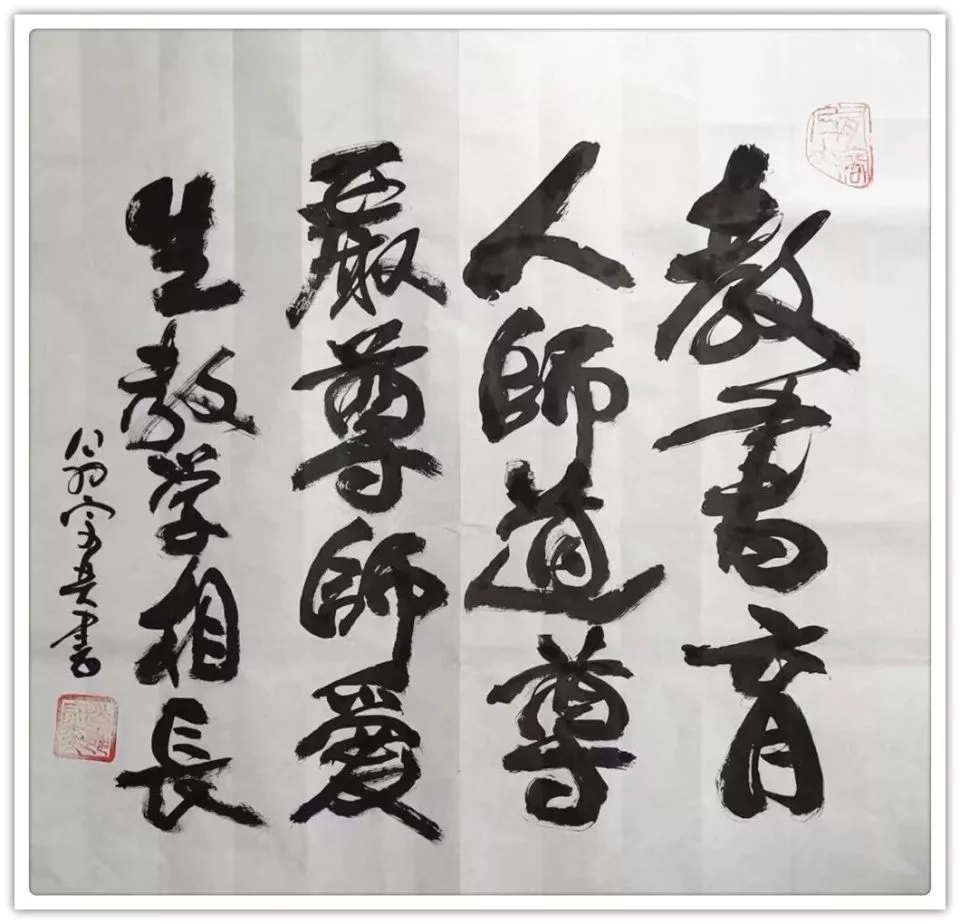 教書育
人師道尊
嚴尊師愛
生教學相長
書